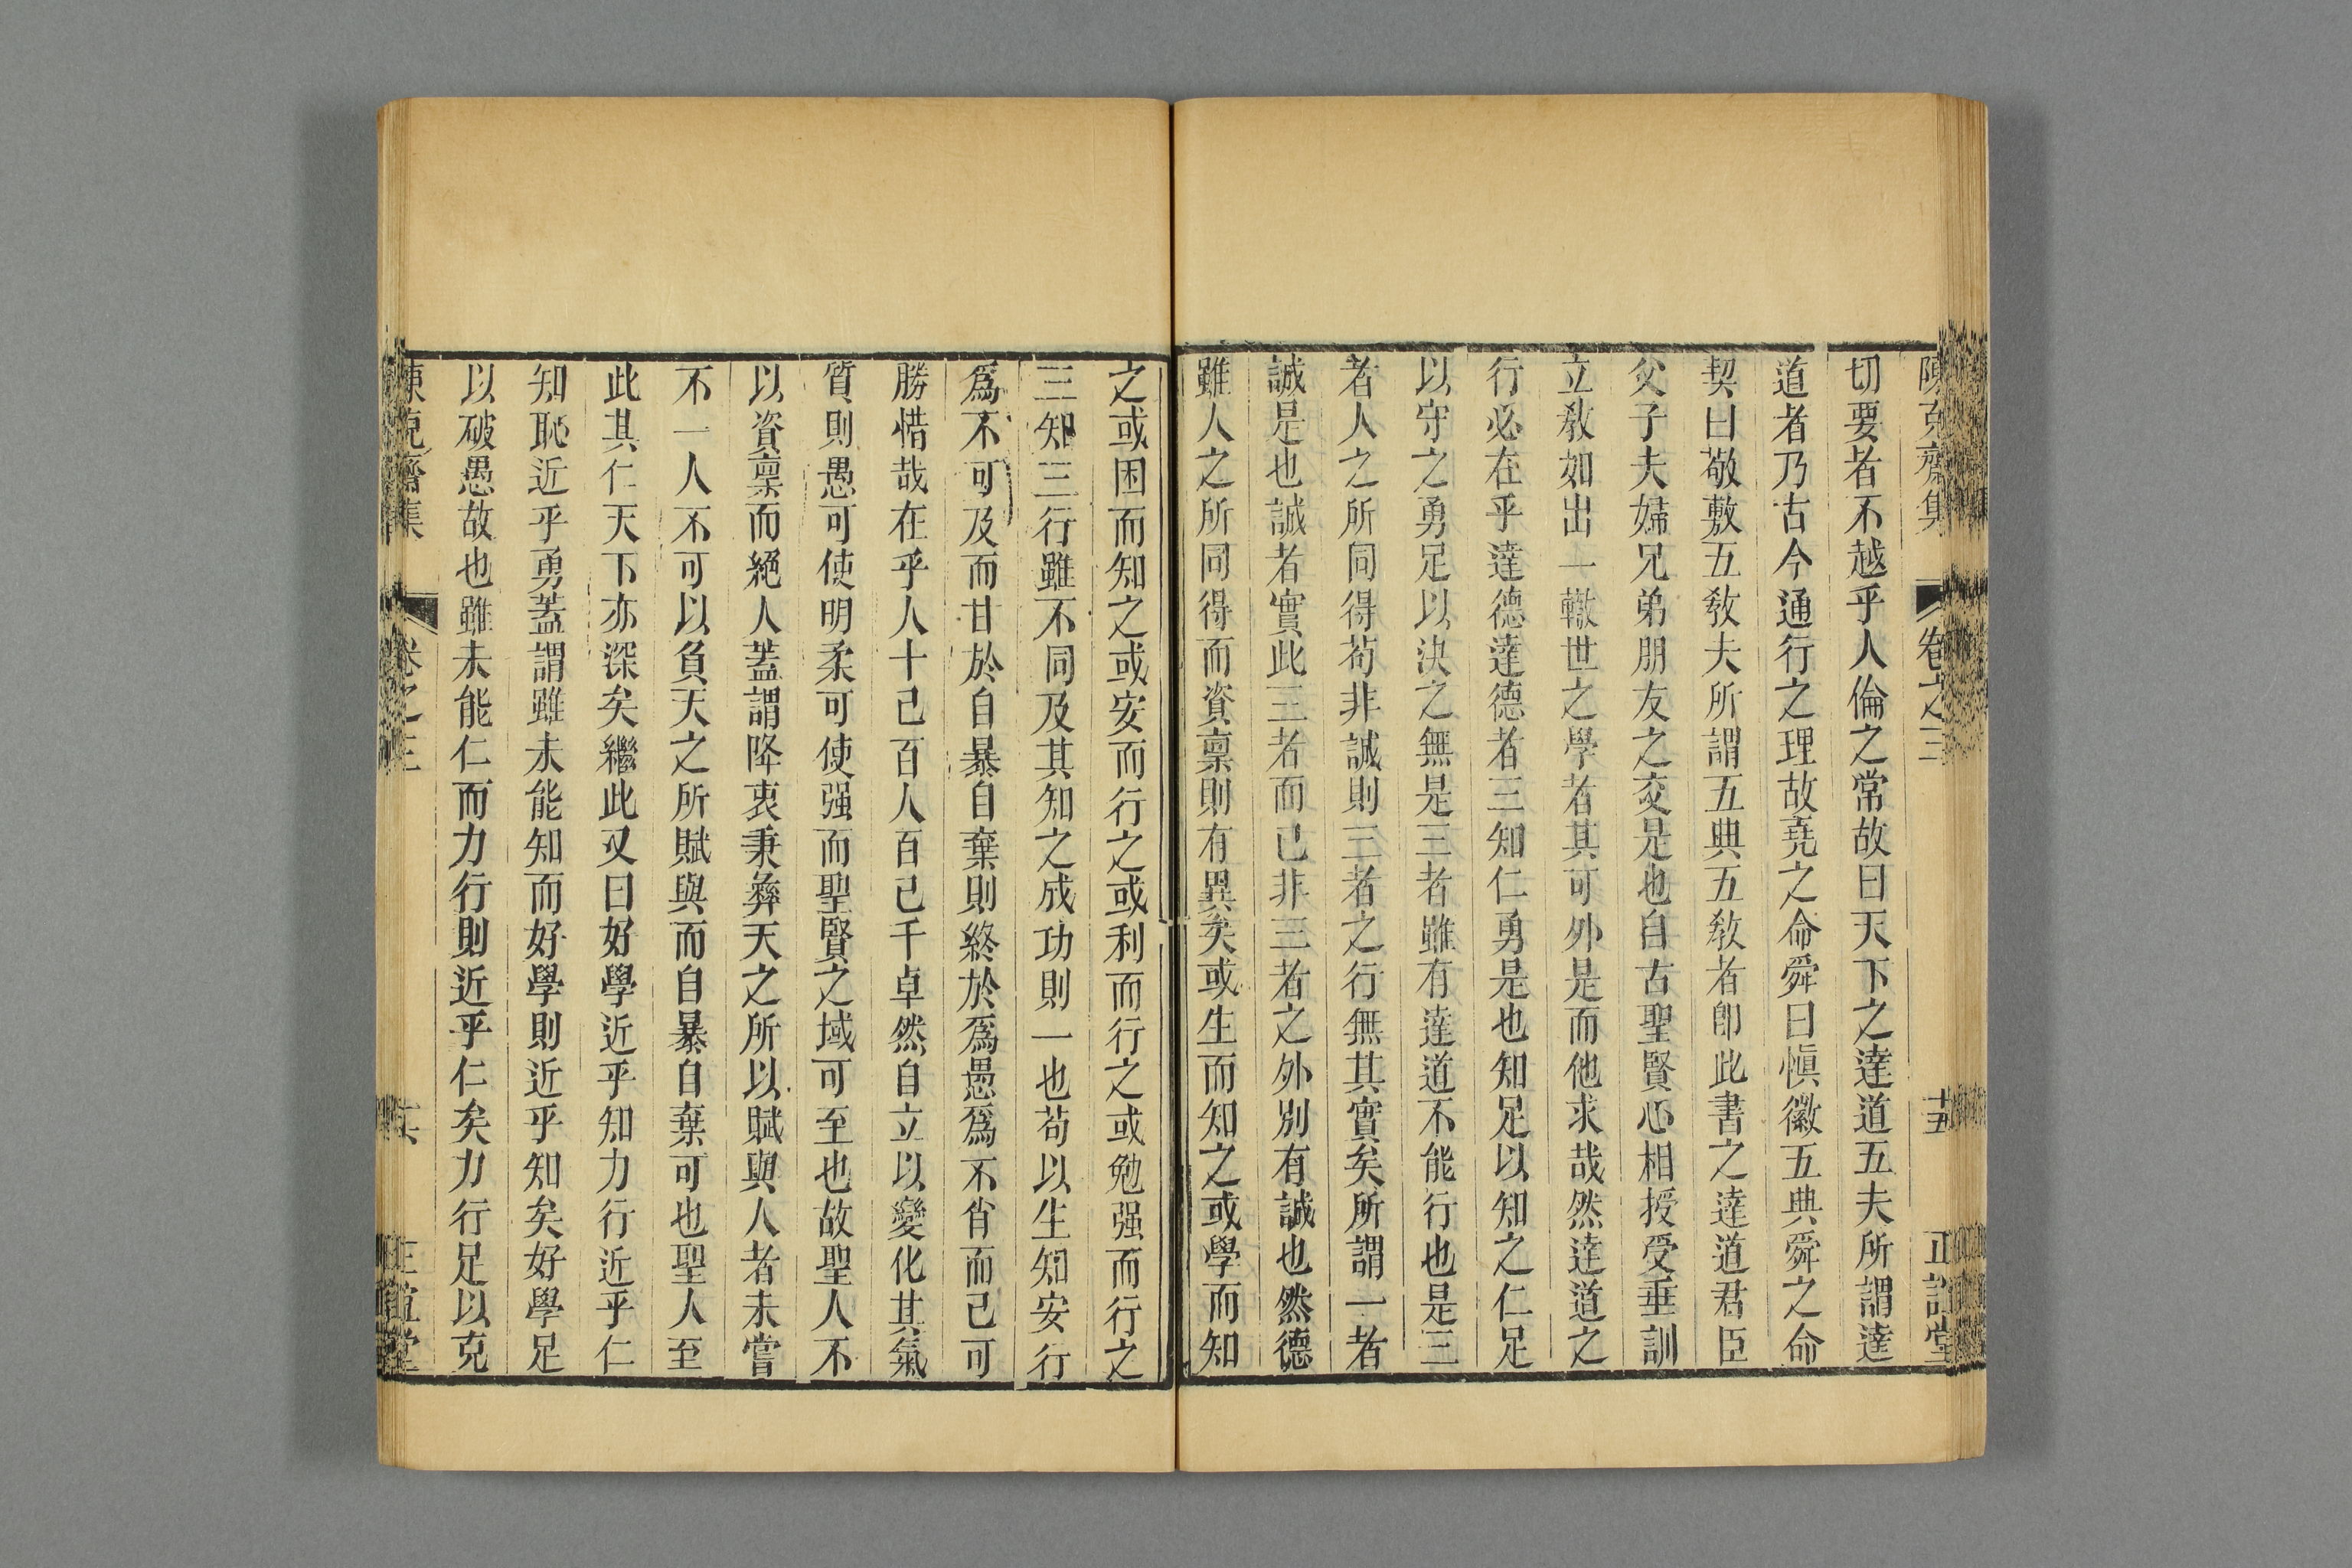 陳克齋集 卷之三 十五 正誼堂
切要者不越乎人倫之常故曰天下之達道五夫所謂達
道者乃古今通行之理故堯之命舜曰愼徽五典舜之命
契曰敬敷五敎夫所謂五典五敎者卽此書之達道君臣
父子夫婦兄弟朋友之交是也自古聖賢心相授受垂訓
立敎如出一轍世之學者其可外是而他求哉然達道之
行必在乎達德達德者三知仁勇是也知足以知之仁足
以守之勇足以決之無是三者雖有達道不能行也是三
者人之所同得苟非誠則三者之行無其實矣所謂一者
誠是也誠者實此三者而已非三者之外別有誠也然德
雖人之所同得而資稟則有異矣或生而知之或學而知
之或困而知之或安而行之或利而行之或勉强而行之
三知三行雖不同及其知之成功則一也苟以生知安行
爲不可及而甘於自暴自棄則終於爲愚爲不肖而已可
勝惜哉在乎人十己百人百己千卓然自立以變化其氣
質則愚可使明柔可使强而聖賢之域可至也故聖人不
以資稟而絕人蓋謂降衷秉彝天之所以賦與人者未嘗
不一人不可以負天之所賦與而自暴自棄可也聖人至
此其仁天下亦深矣繼此又曰好學近乎知力行近乎仁
知恥近乎勇蓋謂雖未能知而好學則近乎知矣好學足
以破愚故也雖未能仁而力行則近乎仁矣力行足以克
陳克齋集 卷之三 十六 正誼堂